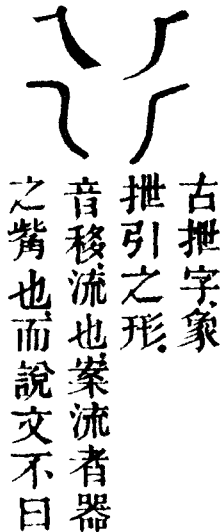 古抴字、象
抴引之形、
音移、流也、案流者器
之觜也、而說文不曰